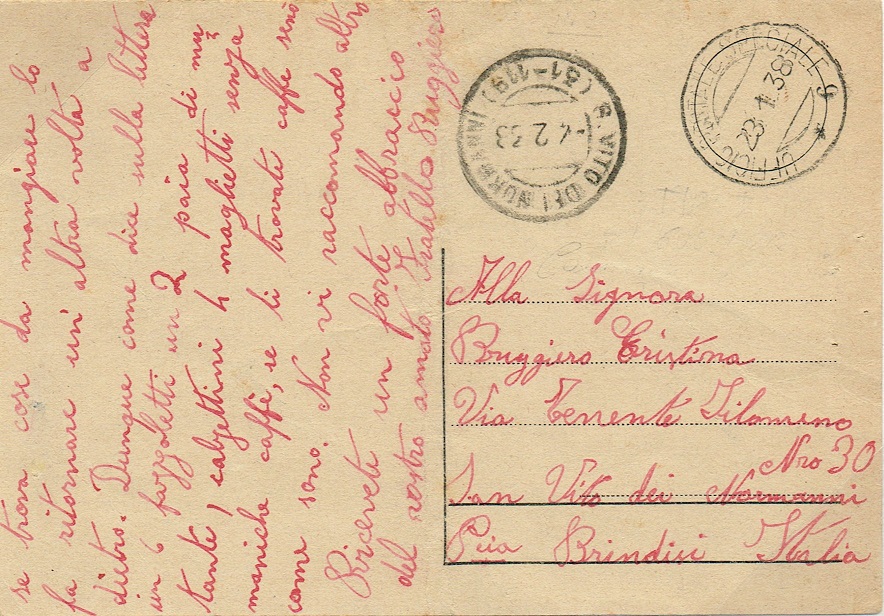 se trova così da mangiare lo
fa ritornare un'altra volta a
dietro. Dunque come dice sulla littera
un 6 fazzoletti un 2 paia di mu
tante, calzettini 4 maglietti senza
maniche caffè, se li trovate caffe seno
come sono. Non vi raccomando altro
Riceveti un forte abbraccio
del vostro amato Fratello Ruggiero
S. VITO DEI NORMANNI
(31-119)
-4.2.33
UFFICIO POSTALE SPECIALE 9 *
23 1 38
Alla Signora
Ruggiero Cristina
Via Tenente Filomeno
Nro 30
San Vito dei Normanni
Pcia Brindisi Italia